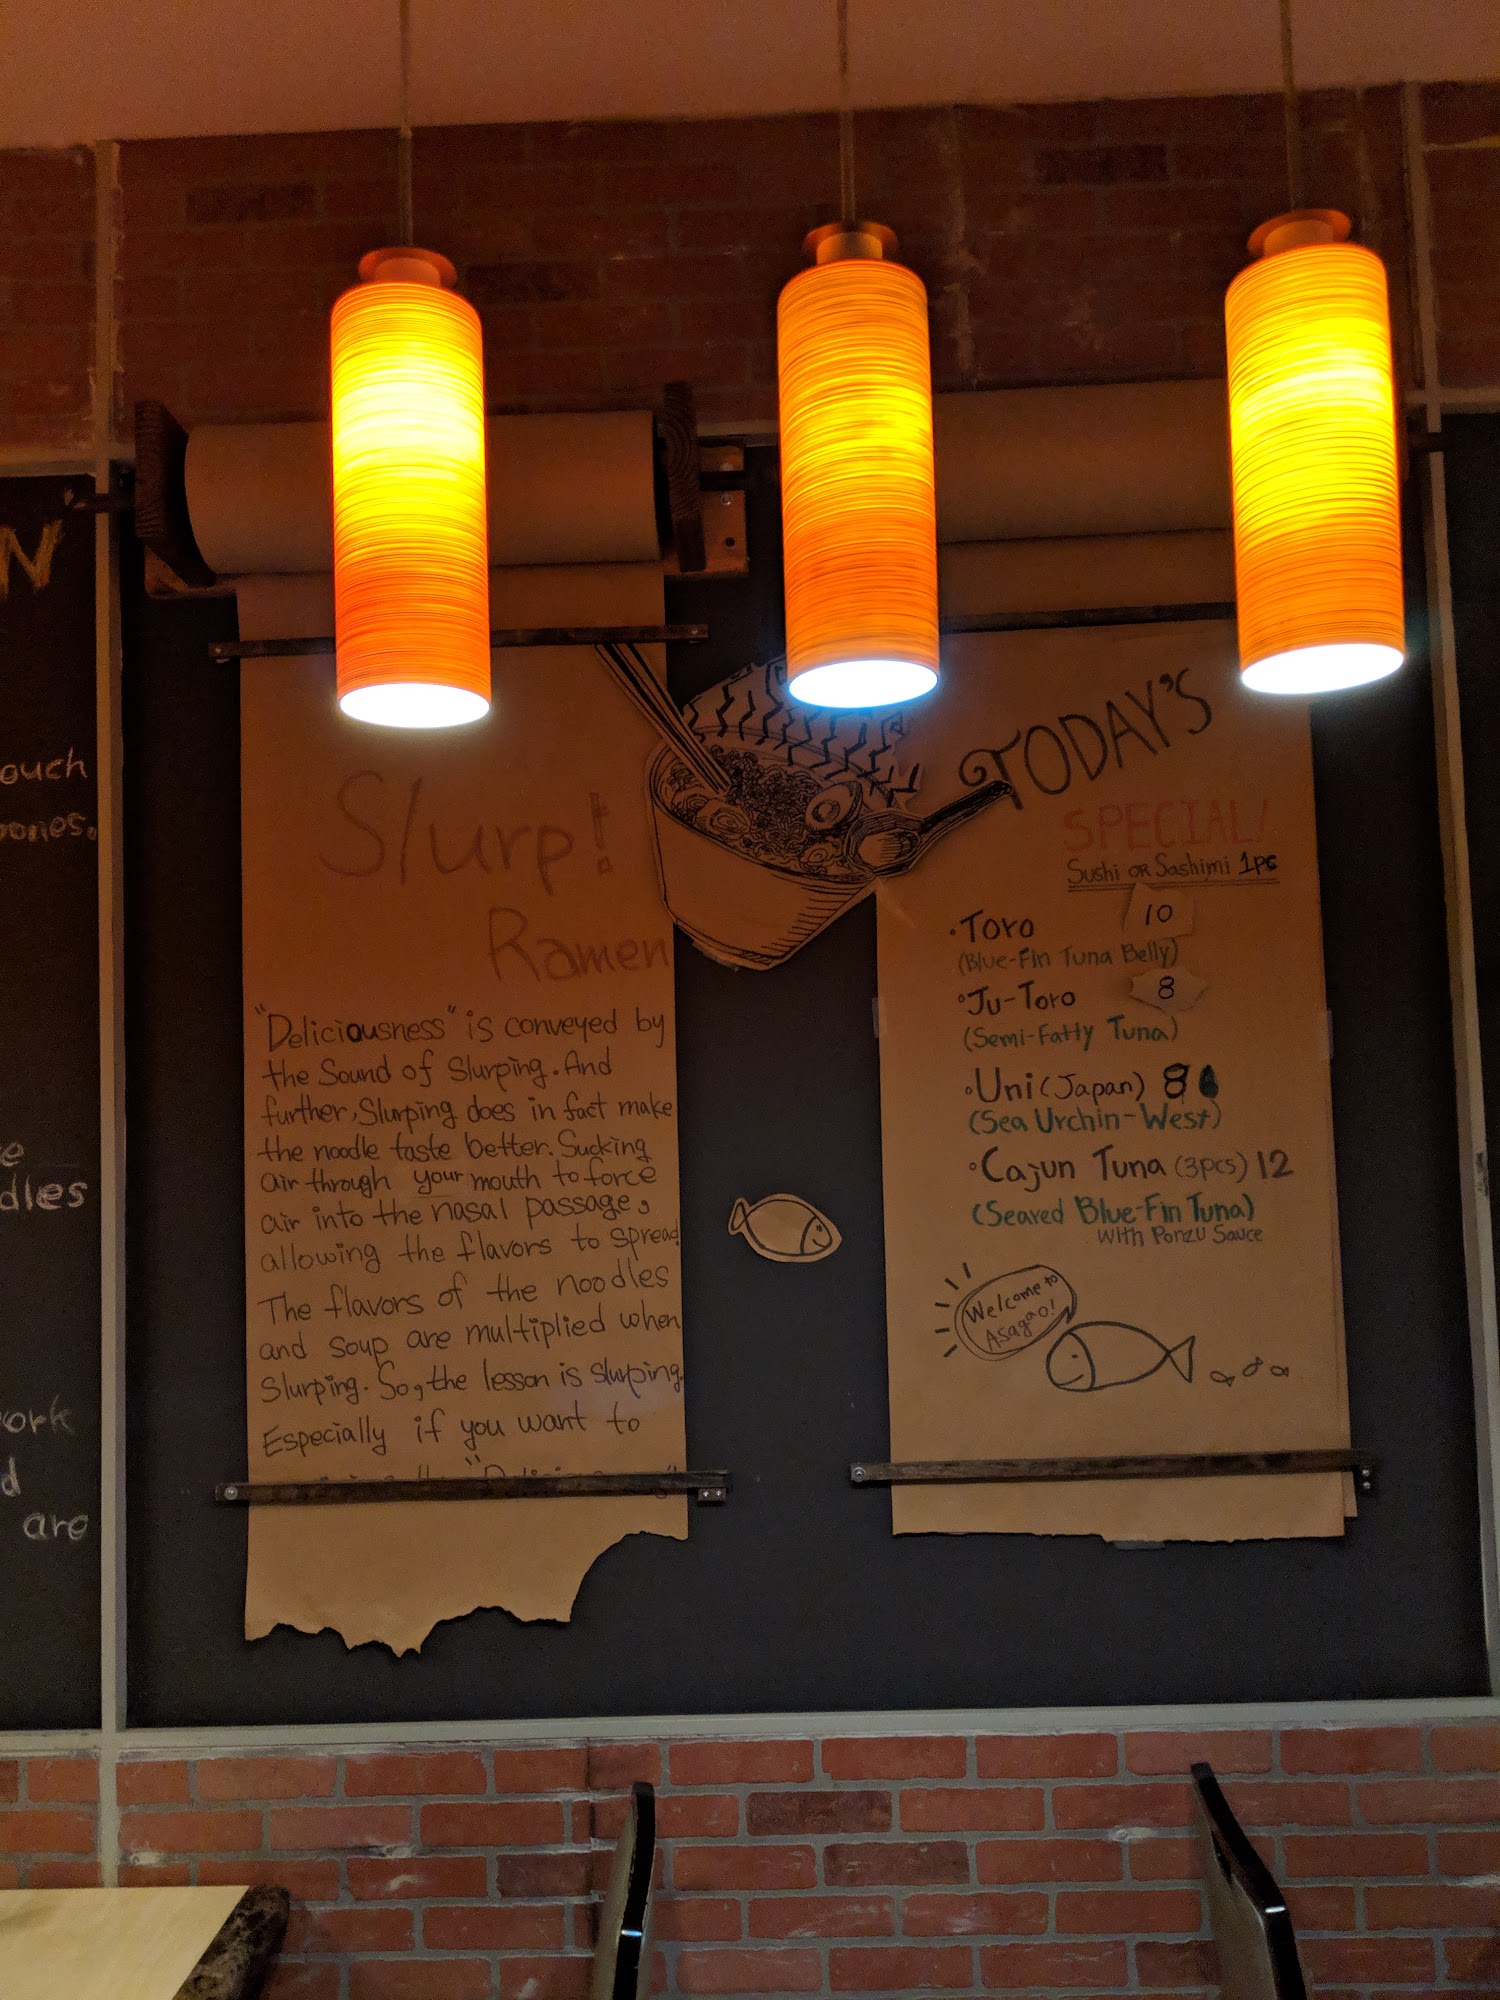 N
ouch
bones.
e
dles
ork
d
are
Slurp!
Ramen
"Deliciousness" is conveyed by
the Sound of Slurping. And
further, Slurping does in fact make
the noodle taste better. Sucking
air through your mouth to force
air into the nasal passage,
allowing the flavors to spread
The flavors of the noodles
and soup are multiplied when
Slurping. So, the lesson is slurping.
Especially if you want to
TODAY'S
SPECIAL!
Sushi or Sashimi 1pc
• Toro 10
(Blue-Fin Tuna Belly)
• Ju-Toro 8
(Semi-Fatty Tuna)
• Uni (Japan) 8
(Sea Urchin-West)
• Cajun Tuna (3pcs) 12
(Seared Blue-Fin Tuna)
with Ponzu Sauce
Welcome to
Asagao!